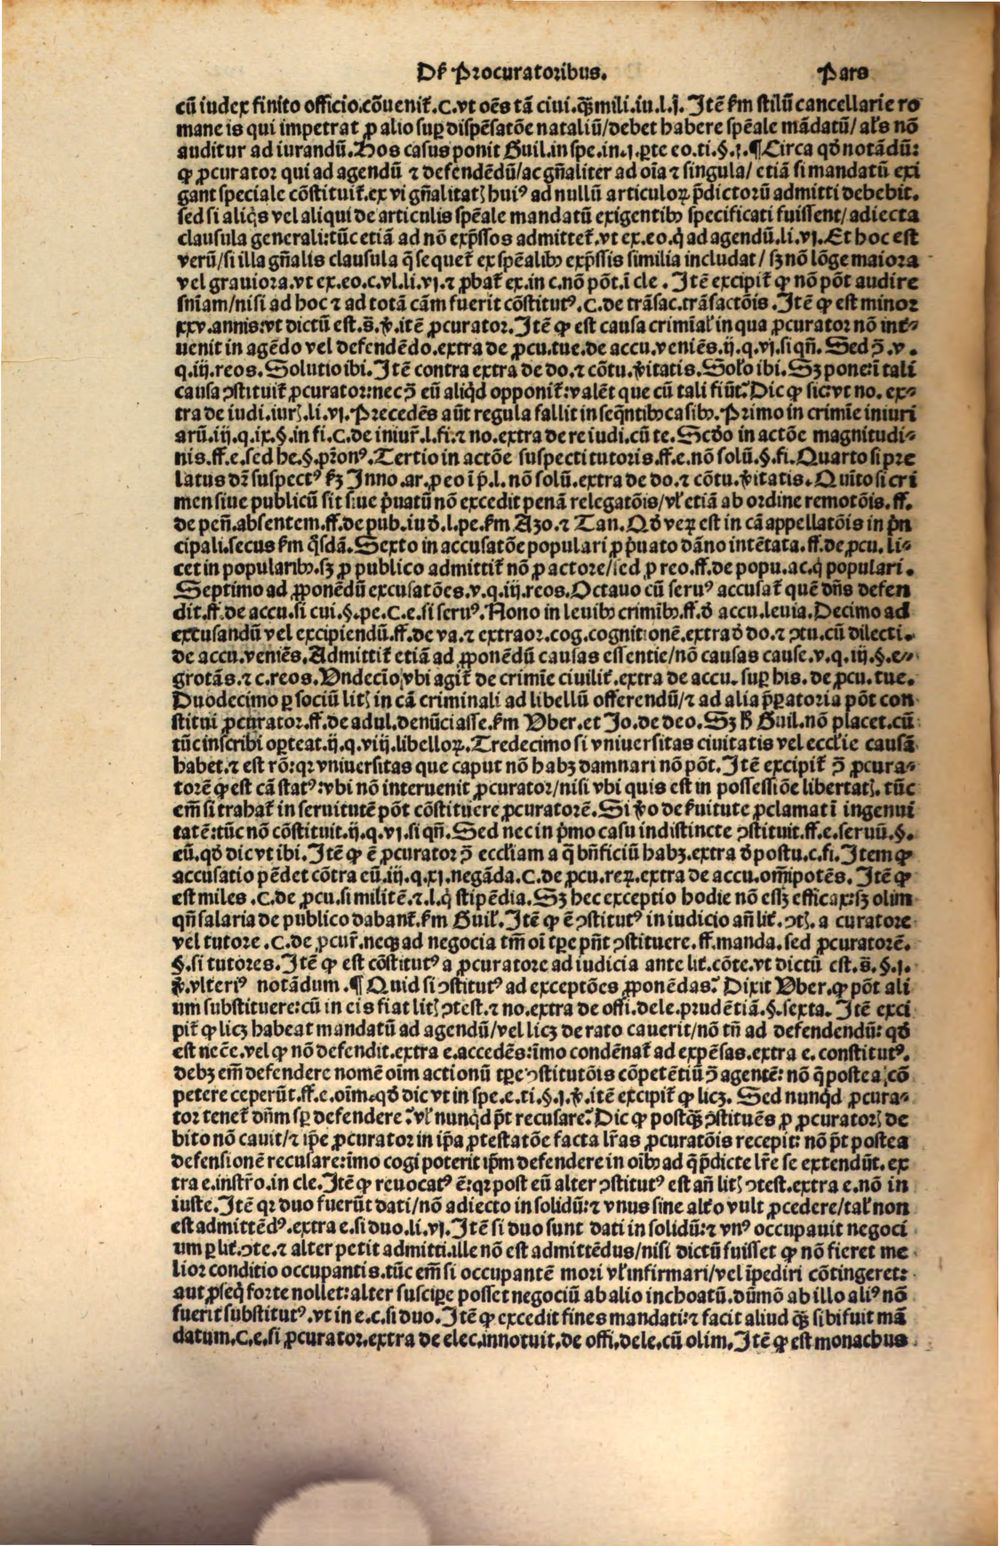 De Procuratoribus. Pars
cū iudex finito officio.cōuenit̄.C.vt oēs tā ciui.q̄ȝ mili.iu.l.j.Itē ẜm stilū cancellarie ro
mane is qui impetrat ꝓ alio sup̱ dispēsatōe nataliū/debet habere spēale mādatū/al's nō
auditur ad iurandū.Hos casus ponit Guil.in spe.in.j.p̱te eo.ti.§.j.¶Circa qd̄ notādū:
ꝙ ꝓcurator qui ad agendū ⁊ defendēdū/ac gn̄aliter ad oīa ⁊ singula/etiā si mandatū exi
gant speciale cōstituit̄.ex vi gn̄alitatꝭ huiꝰ ad nullū articuloꝝ p̄dictorū admitti debebit.
sed si aliq̇s vel aliqui de articulis spēale mandatū exigentibꝫ specificati fuissent/adiecta
clausula generali:tūc etiā ad nō exp̄ssos admittet̄.vt ex.eo.q̇ ad agendū.li.vj.Et hoc est
verū/si illa gn̄alis clausula q̄ sequet̄ ex spēalibꝫ exp̄ssis similia includat/sꝫ nō lōge maiora
vel grauiora.vt ex.eo.c.vl.li.vj.⁊ ꝓbat̄ ex.in c.nō pōt.ī cle. Itē excipit̄ ꝙ nō pōt audire
sn̄iam/nisi ad hoc ⁊ ad totā cām fuerit cōstitutꝰ.C.de trāsac.trāsactōis.Itē ꝙ est minor
xxv.annis:vt dictū est.s̄.ꝟ.itē ꝓcurator.Itē ꝙ est causa crimīal' in qua ꝓcurator nō int̄-
uenit in agēdo vel defendēdo.extra de ꝓcu.tue.de accu.veniēs.ij.q.vj.si qn̄. Sed ꝯ̄.v.
q.iij.reos.Solutio ibi.Itē contra extra de do.⁊ cōtu.ꝟitatis. Sol'o ibi.Sꝫ pone:ī tali
causa ꝯstituit̄ ꝓcurator:nec ꝯ̄ eū aliq̇d opponit̄:valēt que cū tali fiūt?Dic ꝙ sic:vt no.ex-
tra de iudi.iurꝭ.li.vj.Precedēs aūt regula fallit in seq̄ntibꝫ casibꝫ.Primo in crimīe iniuri
arū.iij.q.ix.§.in fi.C.de iniur̄.l.fi.⁊ no.extra de re iudi.cū te.Scd̄o in actōe magnitudi-
nis.ff.e.sed he.§.p̄tonꝰ.Tertio in actōe suspecti tutoris.ff.e.nō solū.§.fi.Quarto si pre
latus dr̄ suspectꝰ ẜꝫ Inno.ar.ꝓ eo ī p̄.l.nō solū.extra de do.⁊ cōtu.ꝟitatis.Quīto si cri
men siue publicū sit siue ṗuatū nō excedit penā relegatōis/vl' etiā ab ordine remotōis.ff.
de pen̄.absentem.ff.de pub.iud̄.l.pe.ẜm Azo.⁊ Tan. Qd̄ veꝝ est in cā appellatōis in ṗn
cipali.secus ẜm q̇sdā.Sexto in accusatōe populari ꝓ ṗuato dāno intētata.ff.de ꝓcu.li-
cet in popularibꝫ.sꝫ ꝓ publico admittit̄ nō ꝓ actore/sed ꝓ reo.ff.de popu.ac.q̇ populari.
Septimo ad ꝓponēdū excusatōes.v.q.iij.reos.Octauo cū seruꝰ accusat̄ quē dn̄s defen
dit.ff.de accu.si cui.§.pe.C.e.si seruꝰ.Nono in leuibꝫ crimibꝫ.ff.d̄ accu.leuia.Decimo ad
excusandū vel excipiendū.ff.de va.⁊ extraor.cog.cognitionē.extra d̄ do.⁊ ꝯtu.cū dilecti.
de accu.veniēs.Admittit̄ etiā ad ꝓponēdū causas essentie/nō causas cause.v.q.iij.§.e-
grotās.⁊ c.reos.Vndecīo/vbi agit̄ de crimīe ciuilit̄.extra de accu.sup̱ his.de ꝓcu.tue.
Duodecimo p̱ sociū litꝭ in cā criminali ad libellū offerendū/⁊ ad alia p̄p̱atoria pōt con
stitui ꝓcurator.ff.de adul.denūciasse.ẜm Vber.et Jo.de deo.Sꝫ B̄ Guil.nō placet.cū
tūc inscribi op̱teat.ij.q.viij.libelloꝝ.Tredecimo si vniuersitas ciuitatis vel eccl'ie causā
habet.⁊ est rō:qꝛ vniuersitas que caput nō habꝫ damnari nō pōt.Itē excipit̄ ꝯ̄ ꝓcura-
torē ꝙ est cā statꝰ:vbi nō interuenit ꝓcurator/nisi vbi quis est in possessiōe libertatꝭ.tūc
em̄ si trahat̄ in seruitutē pōt cōstituere ꝓcuratorē. Si ꝟo de ẜuitute ꝓclamat ī ingenui
tatē:tūc nō cōstituit.ij.q.vj.si qn̄.Sed nec in ṗmo casu indistincte ꝯstituit.ff.e.seruū.§.
cū.qd̄ dic vt ibi.Itē ꝙ ē ꝓcurator ꝯ̄ eccl̄iam a q̄ bn̄ficiū habꝫ.extra d̄ postu.c.fi.Item ꝙ
accusatio pēdet cōtra eū.iij.q.xj.negāda.C.de ꝓcu.reꝝ.extra de accu.om̄ipotēs. Itē ꝙ
est miles.C.de ꝓcu.si militē.⁊ l.q̇ stipēdia.Sꝫ hec exceptio hodie nō essꝫ efficax:sꝫ olim
qn̄ salaria de publico dabant̄.ẜm Guil'.Itē ꝙ ē ꝯstitutꝰ in iudicio an̄ lit̄.ꝯtꝭ.a curatore
vel tutore.C.de ꝓcur̄.neqꝫ ad negocia tm̄ oī tp̱e pn̄t ꝯstituere.ff.manda.sed ꝓcuratorē.
§.si tutores.Itē ꝙ est cōstitutꝰ a ꝓcuratore ad iudicia ante lit̄.cōte.vt dictū est.s̄.§.j.
ꝟ.vlteriꝰ notādum.¶Quid si ꝯstitutꝰ ad exceptōes ꝓponēdas?Dixit Vber.ꝙ pōt ali
um substituere:cū in eis fiat litꝭ ꝯtest.⁊ no.extra de offi.dele.prudētiā.§.sexta. Itē exci
pit̄ ꝙ licꝫ habeat mandatū ad agendū/vel licꝫ de rato cauerit/nō tn̄ ad defendendū:qd̄
est necē.vel ꝙ nō defendit.extra e.accedēs:īmo condēnat̄ ad expēsas.extra e.constitutꝰ.
debꝫ em̄ defendere nomē oīm actionū tp̱e ꝯstitutōis cōpetētiū ꝯ̄ agentē:nō q̄ postea cō
petere ceperūt.ff.e.oīm.qd̄ dic vt in spe.e.ti.§.j.ꝟ.itē excipit̄ ꝙ licꝫ. Sed nunqd̄ ꝓcura-
tor tenet̄ dn̄m sp̱ defendere?vl' nunqd̄ p̄t recusare?Dic ꝙ postq̄ȝ ꝯstituēs ꝓ ꝓcuratorꝭ de
bito nō cauit/⁊ ip̄e ꝓcurator in ip̄a ꝓtestatōe facta lr̄as ꝓcuratōis recepit:nō p̄t postea
defensionē recusare:īmo cogi poterit ip̄m defendere in oībꝫ ad q̄ p̄dicte lr̄e se extendūt.ex
tra e.instr̄o.in cle.Itē ꝙ reuocatꝰ ē:qꝛ post eū alter ꝯstitutꝰ est an̄ litꝭ ꝯtest.extra e.nō in
iuste.Itē qꝛ duo fuerūt dati/nō adiecto in solidū:⁊ vnus sine alt̄o vult ꝓcedere/tal' non
est admittēdꝰ.extra e.si duo.li.vj.Itē si duo sunt dati in solidū:⁊ vnꝰ occupauit negoci
um p̱ lit̄.ꝯte.⁊ alter petit admitti.ille nō est admittēdus/nisi dictū fuisset ꝙ nō fieret me
lior conditio occupantis.tūc em̄ si occupantē mori vl' infirmari/vel īpediri cōtingeret:
aut ꝓseq̇ forte nollet:alter suscip̱e posset negociū ab alio inchoatū.dūmō ab illo aliꝰ nō
fuerit substitutꝰ.vt in e.c.si duo.Itē ꝙ excedit fines mandati:⁊ facit aliud q̄ȝ sibi fuit mā
datum.C.e.si ꝓcurator.extra de elec.innotuit.de offi.dele.cū olim.Itē ꝙ est monachus